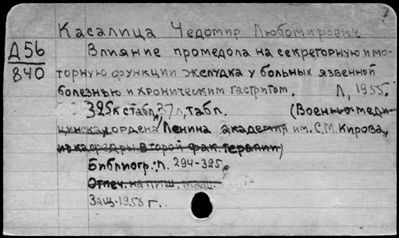 Касалица Чедомир Любомирович
Д56
840
Влияние промедола на секреторную и мо-
торную функции желудка у больных язвенной
болезнью и хроническим гастритом. Л, 1955.
325л с табл, 37 л, табл. (Военно-меди-
цинская ордена Ленина академия им. С.М. Кирова,
из кафедры второй фак. терапии)
Библиогр: л. 294-325.
Отпеч. на пиш. маш.
Защ. 1955 г.